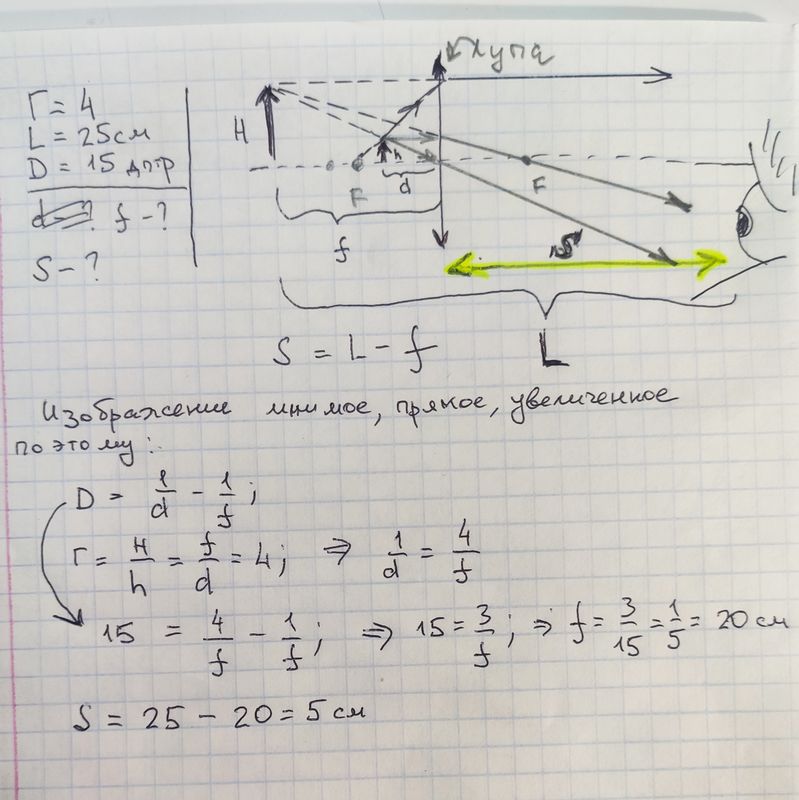 Г = 4
L = 25см
D = 15 дптр
f - ?
S - ?
лупа
H
h
F
d
F
f
S
L
S = L - f
Изображение мнимое, прямое, увеличенное
поэтому:
D = 1/d - 1/f;
Г = H/h = f/d = 4; ⇒ 1/d = 4/f
15 = 4/f - 1/f; ⇒ 15 = 3/f; ⇒ f = 3/15 = 1/5 = 20 см
S = 25 - 20 = 5 см